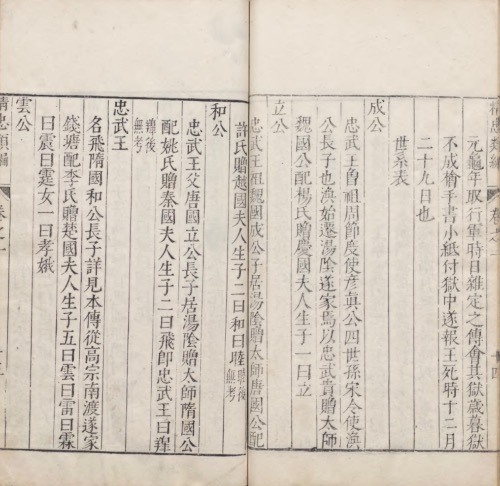 元龜年取行軍時日雜定之傳會其獄歲暮獄
不成檜手書小紙付獄中遂報王死時十二月
二十九日也
世系表
成公
忠武王曾祖周節度使彥真公四世孫宋令使渙
公長子也渙始遷湯陰遂家焉以忠武貴贈太師
魏國公配楊氏贈慶國夫人生子一曰立
立公
忠武王祖魏國成公子居湯陰贈太師唐國公配
許氏贈越國夫人生子二曰和曰睦睦後無考
和公
忠武王父唐國立公長子居湯陰贈太師隋國公
配姚氏贈秦國夫人生子二曰飛即忠武王曰翚
翚後無考
忠武王
名飛隋國和公長子詳見本傳從高宗南渡遂家
錢塘配李氏贈楚國夫人生子五曰雲曰雷曰霖
曰震曰霆女一曰孝娥
雲公
精忠類編
卷之一